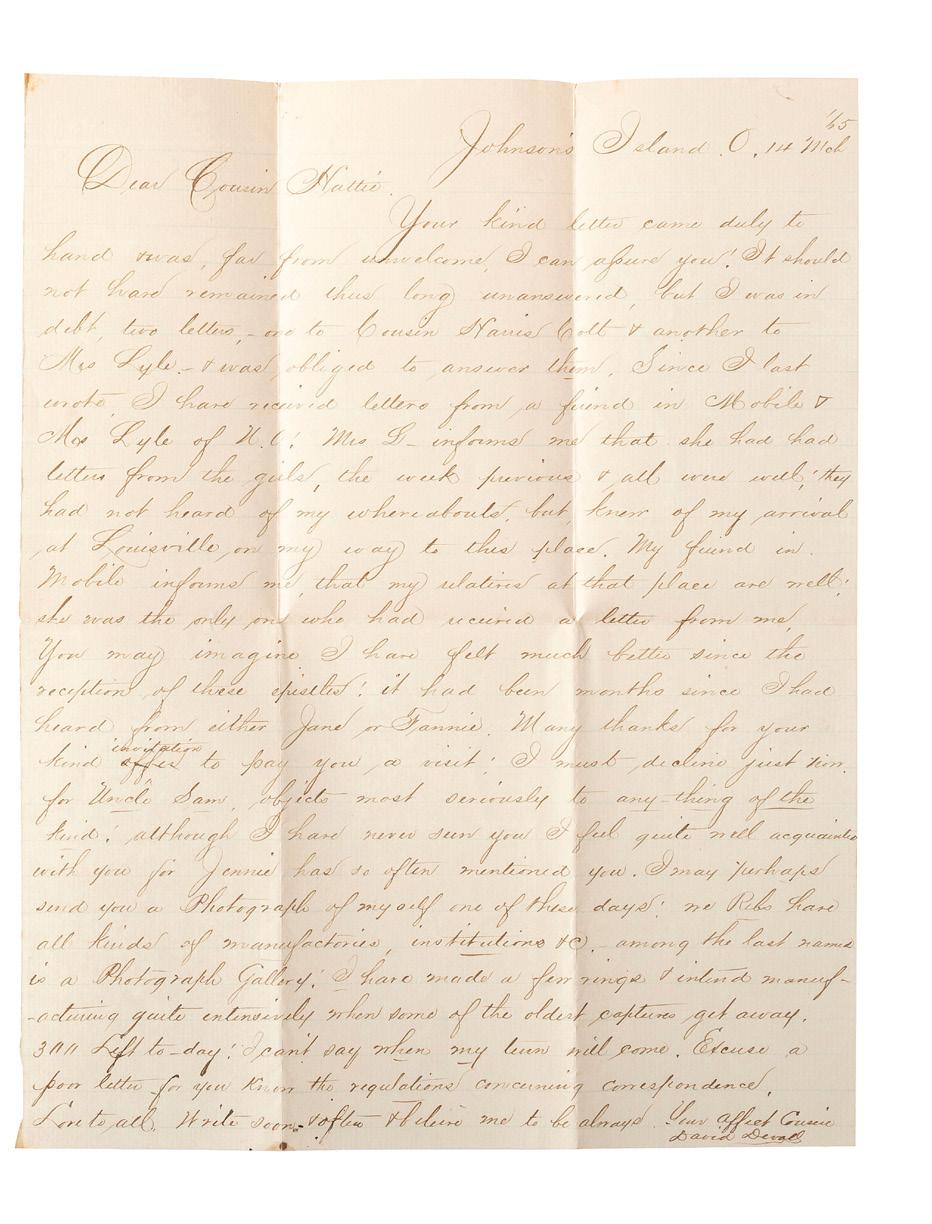 '65
Johnson's Island . O , 14 Mch
Dear Cousin Hattie .
Your kind letter came duly to
hand & was, far from unwelcome, I can assure you! It should
not have remained thus long unanswered, but I was in
debt, two letters, - one to Cousin Harris Colt & another to
Mrs Lyle - & was obliged to answer them. Since I last
wrote, I have received letters from a friend in Mobile &
Mrs Lyle of N. O! Mrs L- informs me that she had had
letters from the girls, the week previous & all were well; they
had not heard of my whereabouts, but, knew of my arrival
at Louisville, on my way to this place. My friend in
Mobile informs me, that my relatives at that place are well;
she was the only one who had received a letter from me.
You may imagine I have felt much better since the
reception of these epistles! it had been months since I had
heard from either Jane or Fannie. Many thanks for your
kind offer invitation to pay you a visit; I must decline just now.
for Uncle Sam, objects most seriously to any-thing of the
kind! although I have never seen you I feel quite well acquainted
with you for Jennie has so often mentioned you. I may perhaps
send you a Photograph of myself one of these days! we Rebs have
all kinds of manufactories, institutions &C. - among the last named
is a Photograph Gallery! I have made a few rings & intend manuf-
-acturing quite intensively when some of the oldest captures get away.
300 Left to-day! I can't say when my turn will come. Excuse a
poor letter for you know the regulations concerning correspondence.
Love to all. Write soon & often & believe me to be always Your affect Cousin
David